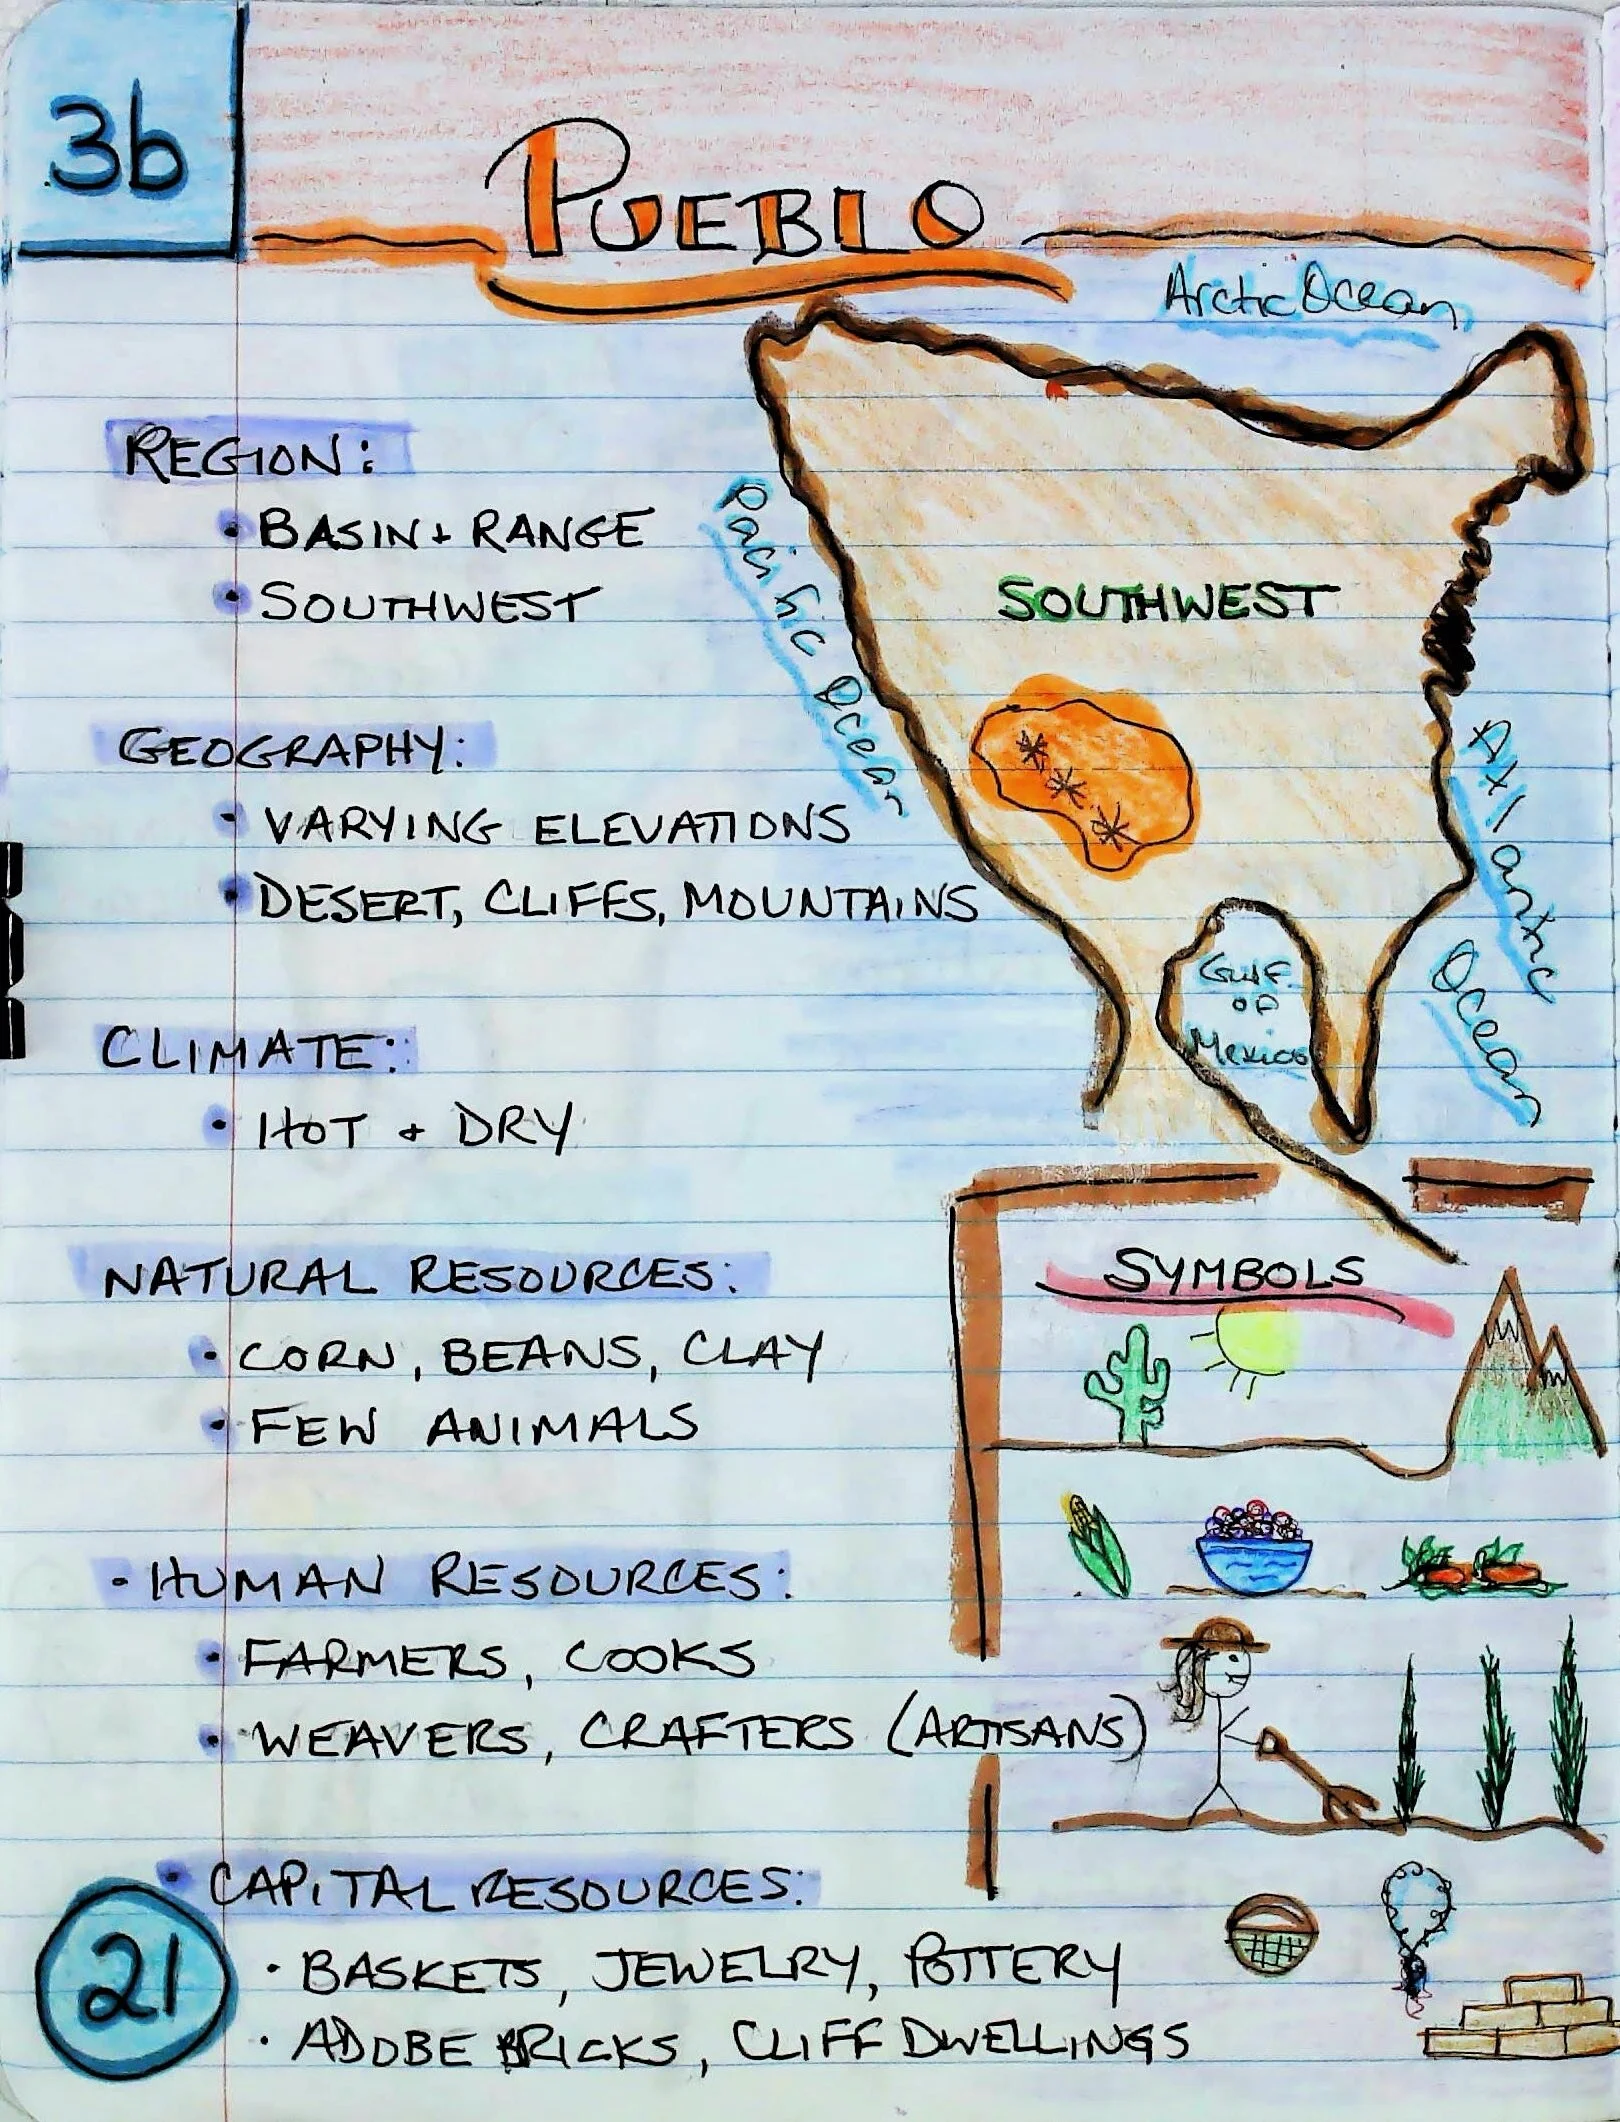 3b
PUEBLO
Arctic Ocean
REGION:
• BASIN + RANGE
• SOUTHWEST
Pacific Ocean
SOUTHWEST
GEOGRAPHY:
• VARYING ELEVATIONS
• DESERT, CLIFFS, MOUNTAINS
Atlantic
Ocean
Gulf
of
Mexico
CLIMATE:
• HOT + DRY
NATURAL RESOURCES:
• CORN, BEANS, CLAY
• FEW ANIMALS
SYMBOLS
• HUMAN RESOURCES:
• FARMERS, COOKS
• WEAVERS, CRAFTERS (ARTISANS)
• CAPITAL RESOURCES:
• BASKETS, JEWELRY, POTTERY
• ADOBE BRICKS, CLIFF DWELLINGS
21